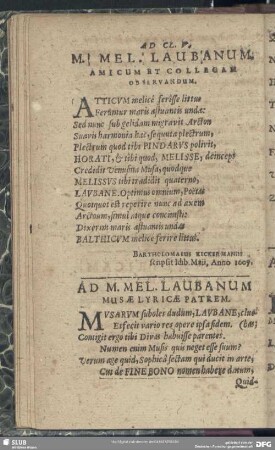 AD CL. V.
M. MEL. LAUBANUM.
AMICUM ET COLLEGAM
OBSERVANDUM.
ATTICVM melicè ferisse littus
Feruntur maris æstuantis undæ:
Sed nunc sub gelidam migravit Arcton
Suavis harmonia hæc, sequuta plectrum,
Plectrum quod tibi PINDARVS polivit,
HORATI, & tibi quod, MELISSE, deinceps
Credidit Venusina Musa, quodque
MELISSVS tibi tradidit quaterno,
LAVBANE, Optime omnium, Poëta
Quotquot est reperire nunc ad axem
Arctoum, simul atque concinisti:
Dixerunt maris æstuantis undæ
BALTHICVM melicè ferire littus.
BARTHOLOMÆUS KECKERMANN
scripsit Idib. Maii, Anno 1607.
AD M. MEL. LAUBANUM
MUSÆ LYRICÆ PATREM.
MVSARVM soboles dudum, LAVBANE, cluebas;
Esse id vario res opere ipsa fidem.
Contigit ergo tibi Divas habuisse parentes.
Numen enim Musis quis neget esse suum?
Verum age quid, Sophicâ sectam qui ducit in arte,
Cui de FINE BONO nomen habere datum,
Quid-